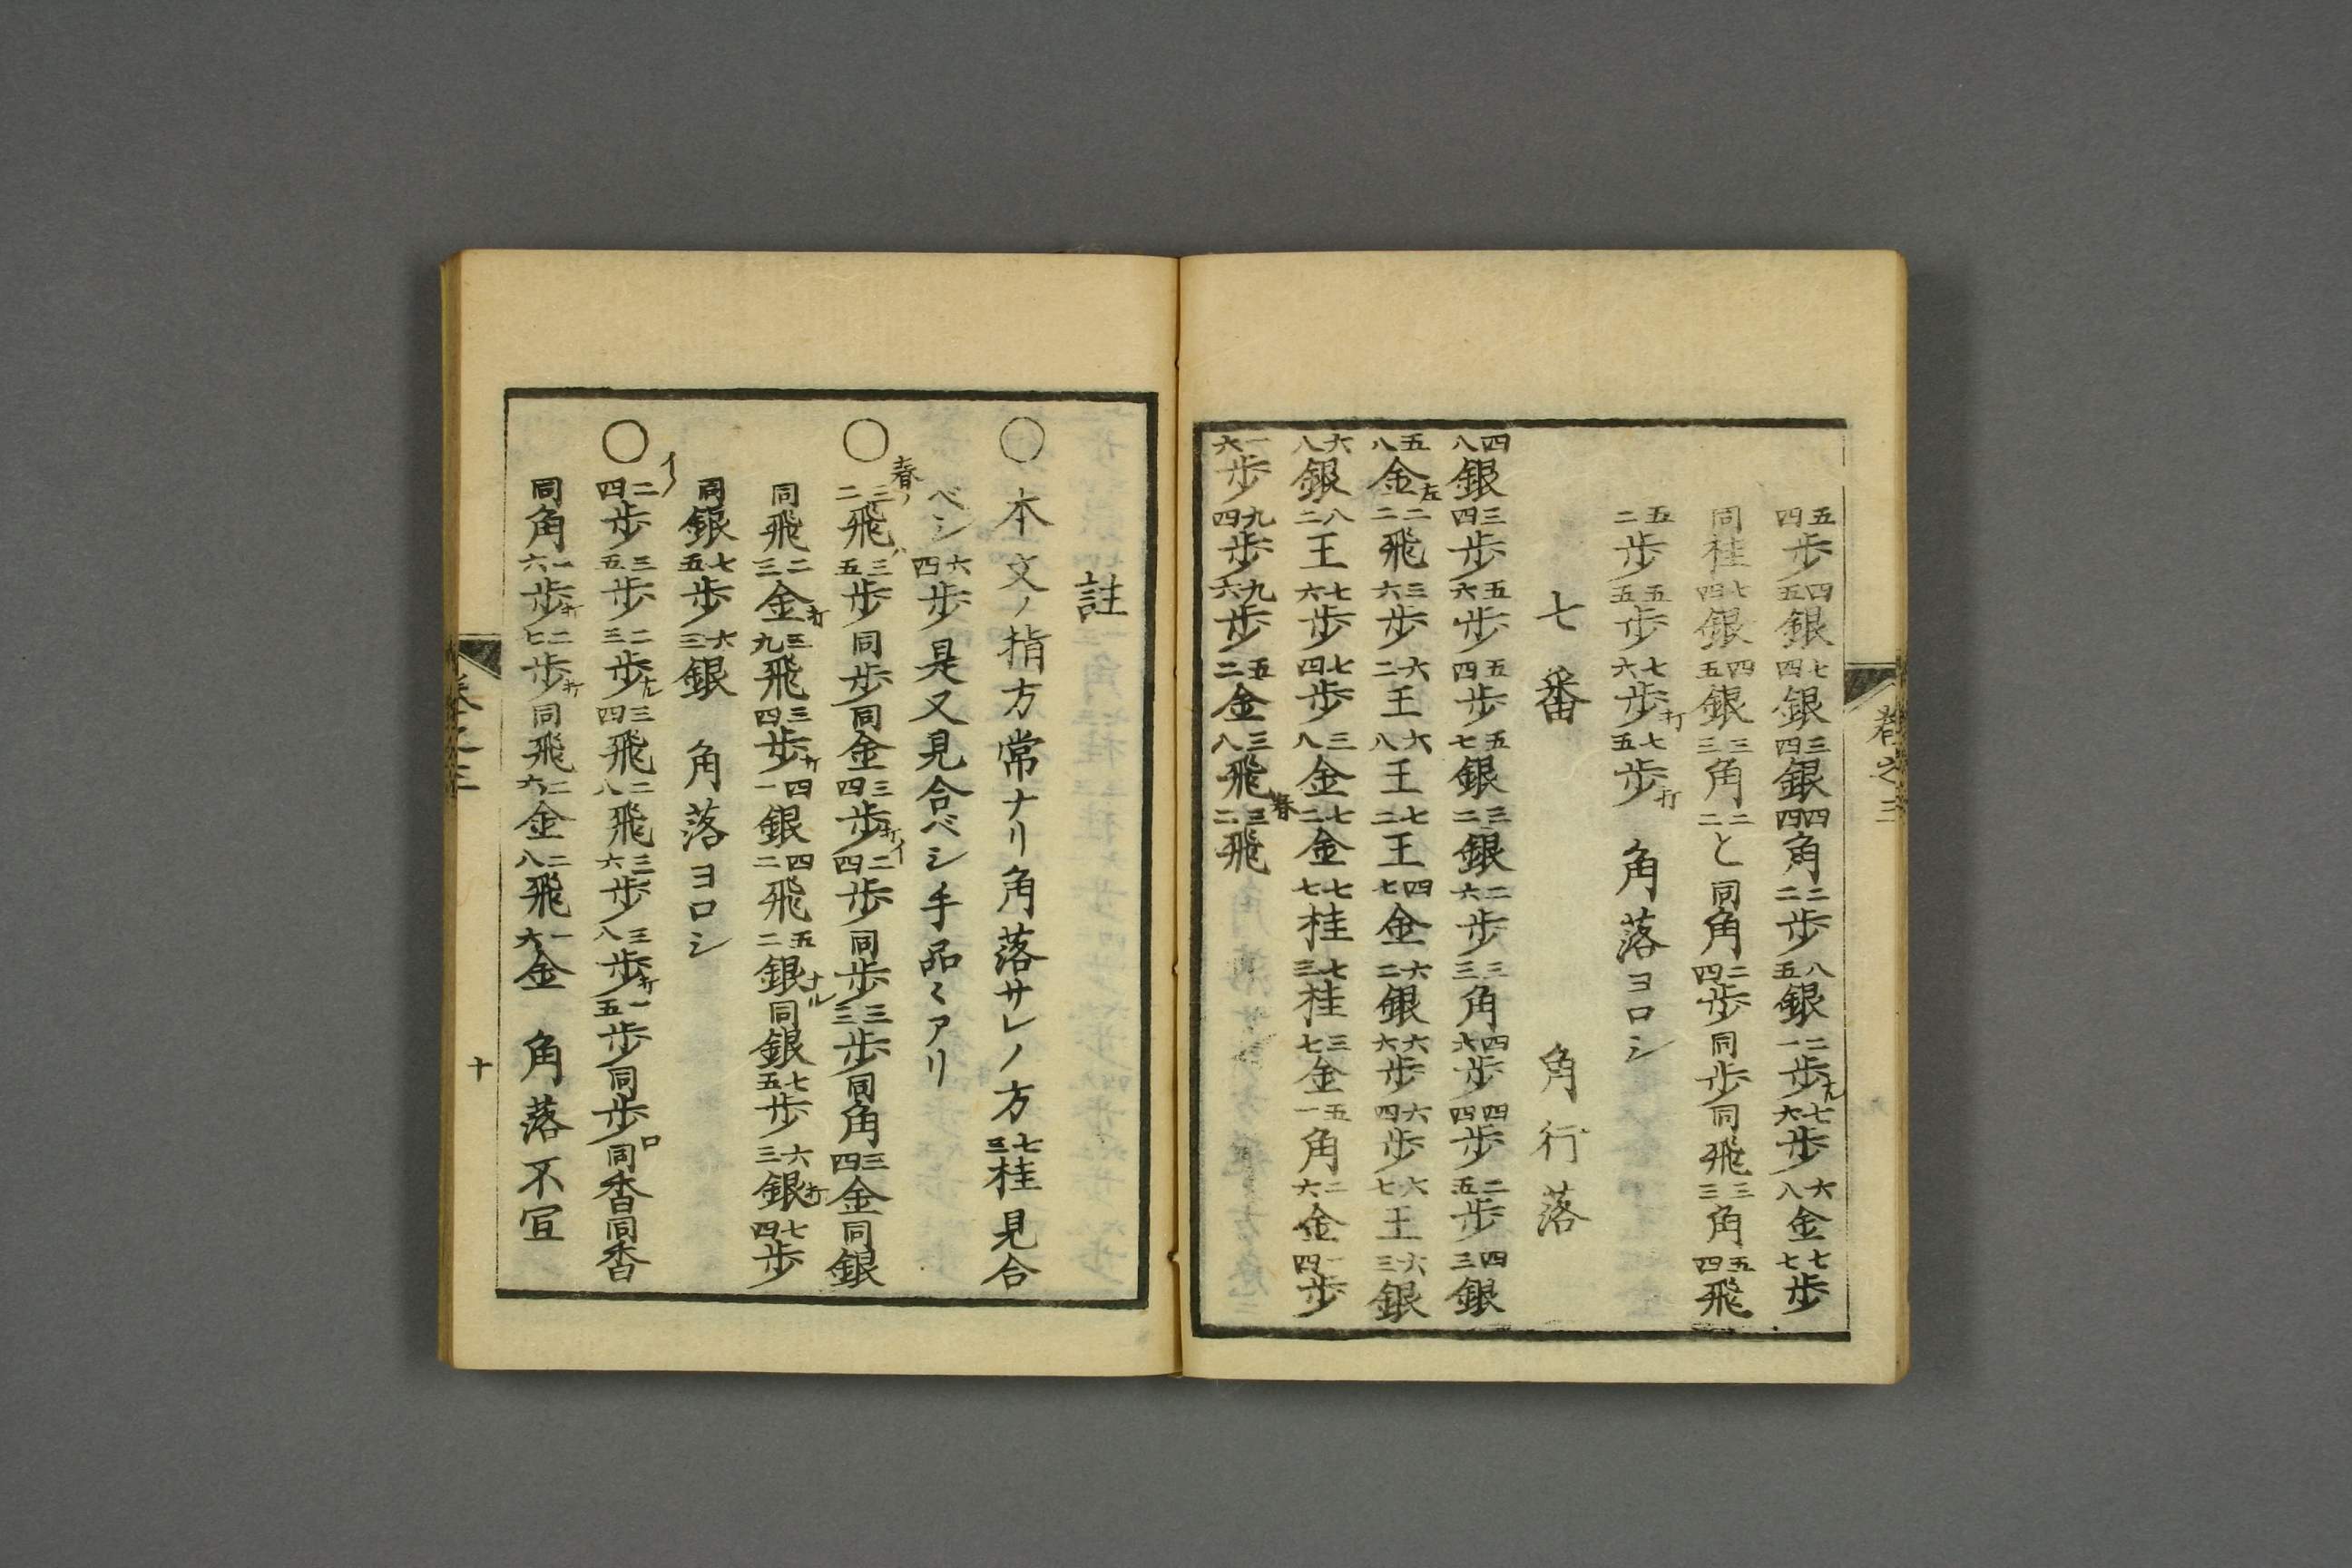 巻之三
五四歩四五銀七四銀三四銀四四角二二歩八五銀二一歩ナル七六歩六八金七七歩
同桂七四銀四五銀三三角二二と同角二四歩同歩同飛三三角五四飛
五二歩五五歩七六歩打七五歩打 角落ヨロシ
七番 角行落
四八銀三四歩五六歩五四歩五七銀三二銀二六歩三三角四六歩四四歩二五歩四三銀
五八金左二二飛三六歩六二王六八王七二王四七金六二銀六六歩六四歩六七王六三銀
六八銀八二王七六歩七四歩三八金七二金七七桂七三桂三七金五一角二六金一四歩
一六歩九四歩九六歩五二金三八飛春三二飛
註
○本文ノ指方常ナリ角落サレノ方七三桂見合
ベシ六四歩是又見合ベシ手品〻アリ
○春ノ三二飛ハ三五歩同歩同金三四歩打イ二四歩同歩三三歩同角三四金同銀
同飛二三金打三九飛三四歩打四一銀四二飛五二銀ナル同銀七五歩六三銀打七四歩
同銀七五歩六三銀 角落ヨロシ
○イ)二四歩三五歩二三歩ナル三四飛二八飛三六歩三八歩打一五歩同歩ロ同香同香
同角一六歩打二七歩打同飛二六金二八飛一六金 角落不宜
巻之三 十